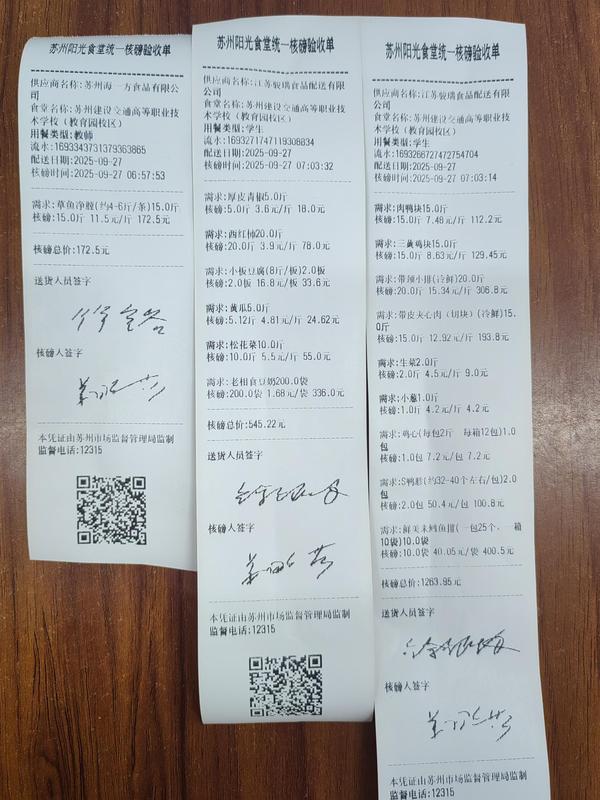 苏州阳光食堂统一核磅验收单
供应商名称:苏州海一方食品有限公
司
食堂名称:苏州建设交通高等职业技
术学校（教育园校区）
用餐类型:教师
流水:1693343731379363865
配送日期:2025-09-27
核磅时间:2025-09-27 06:57:53
需求:草鱼净膛(约4-6斤/条)15.0斤
核磅:15.0斤 11.5元/斤 172.5元
核磅总价:172.5元
送货人员签字
核磅人签字
本凭证由苏州市场监督管理局监制
监督电话:12315
苏州阳光食堂统一核磅验收单
供应商名称:江苏骏瑞食品配送有限
公司
食堂名称:苏州建设交通高等职业技
术学校（教育园校区）
用餐类型:学生
流水:1693271747119308834
配送日期:2025-09-27
核磅时间:2025-09-27 07:03:32
需求:厚皮青椒5.0斤
核磅:5.0斤 3.6元/斤 18.0元
需求:西红柿20.0斤
核磅:20.0斤 3.9元/斤 78.0元
需求:小板豆腐(8斤/板)2.0板
核磅:2.0板 16.8元/板 33.6元
需求:黄瓜5.0斤
核磅:5.12斤 4.81元/斤 24.62元
需求:松花菜10.0斤
核磅:10.0斤 5.5元/斤 55.0元
需求:老相食豆奶200.0袋
核磅:200.0袋 1.68元/袋 336.0元
核磅总价:545.22元
送货人员签字
核磅人签字
本凭证由苏州市场监督管理局监制
监督电话:12315
苏州阳光食堂统一核磅验收单
供应商名称:江苏骏瑞食品配送有限
公司
食堂名称:苏州建设交通高等职业技
术学校（教育园校区）
用餐类型:学生
流水:1693266727472754704
配送日期:2025-09-27
核磅时间:2025-09-27 07:03:14
需求:肉鸭块15.0斤
核磅:15.0斤 7.48元/斤 112.2元
需求:三黄鸡块15.0斤
核磅:15.0斤 8.63元/斤 129.45元
需求:带颈小排(冷鲜)20.0斤
核磅:20.0斤 15.34元/斤 306.8元
需求:带皮夹心肉（切块）(冷鲜)15.
0斤
核磅:15.0斤 12.92元/斤 193.8元
需求:生菜2.0斤
核磅:2.0斤 4.5元/斤 9.0元
需求:小葱1.0斤
核磅:1.0斤 4.2元/斤 4.2元
需求:鸡心(每包2斤 每箱12包)1.0
包
核磅:1.0包 7.2元/包 7.2元
需求:S鸭胗(约32-40个左右/包)2.0
包
核磅:2.0包 50.4元/包 100.8元
需求:鲜美来鳕鱼排(一包25个，一箱
10袋)10.0袋
核磅:10.0袋 40.05元/袋 400.5元
核磅总价:1263.95元
送货人员签字
核磅人签字
本凭证由苏州市场监督管理局监制
监督电话:12315